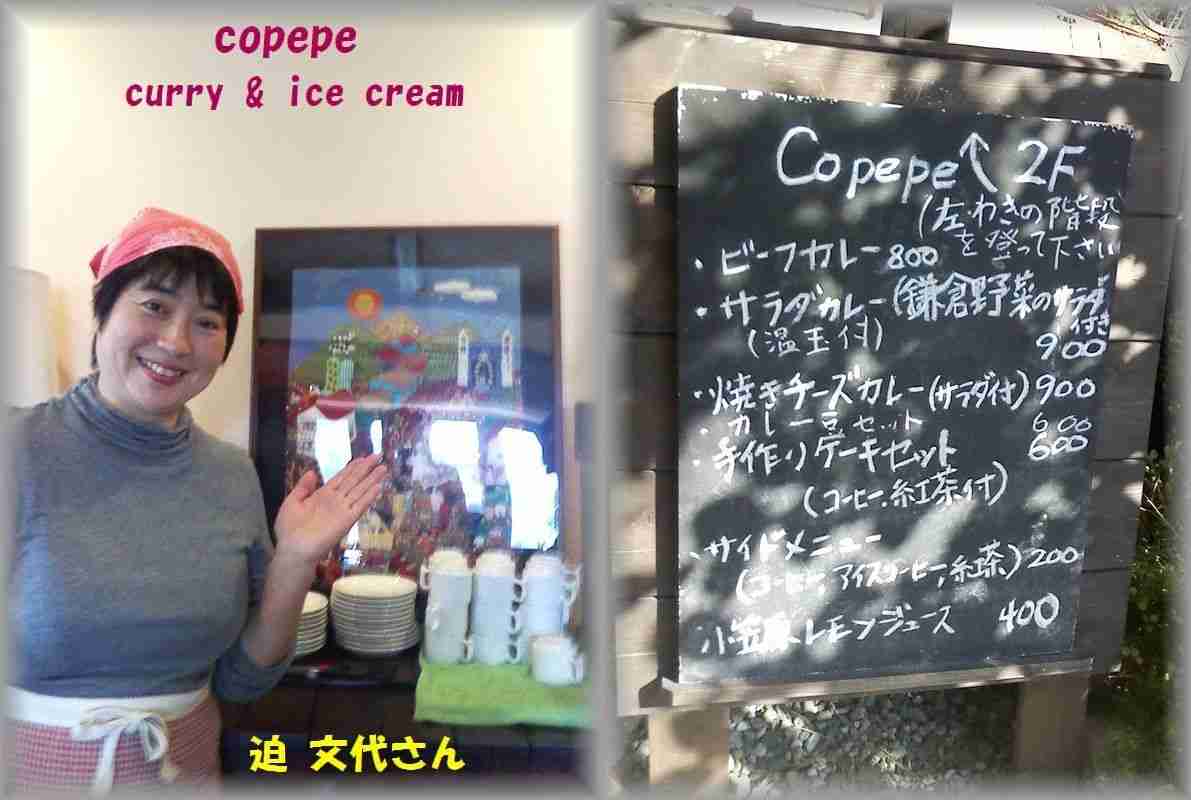 copepe
curry & ice cream
迫 文代さん
Copepe↑ 2F
(左わきの階段
を登って下さい
・ビーフカレー 800
・サラダカレー(鎌倉野菜のサラダ
付き
(温玉付) 900
・焼きチーズカレー(サラダ付) 900
・カレー豆セット 600
・手作りケーキセット 600
(コーヒー,紅茶付)
、サイドメニュー
(コーヒー,アイスコーヒー,紅茶) 200
小笠原レモンジュース 400